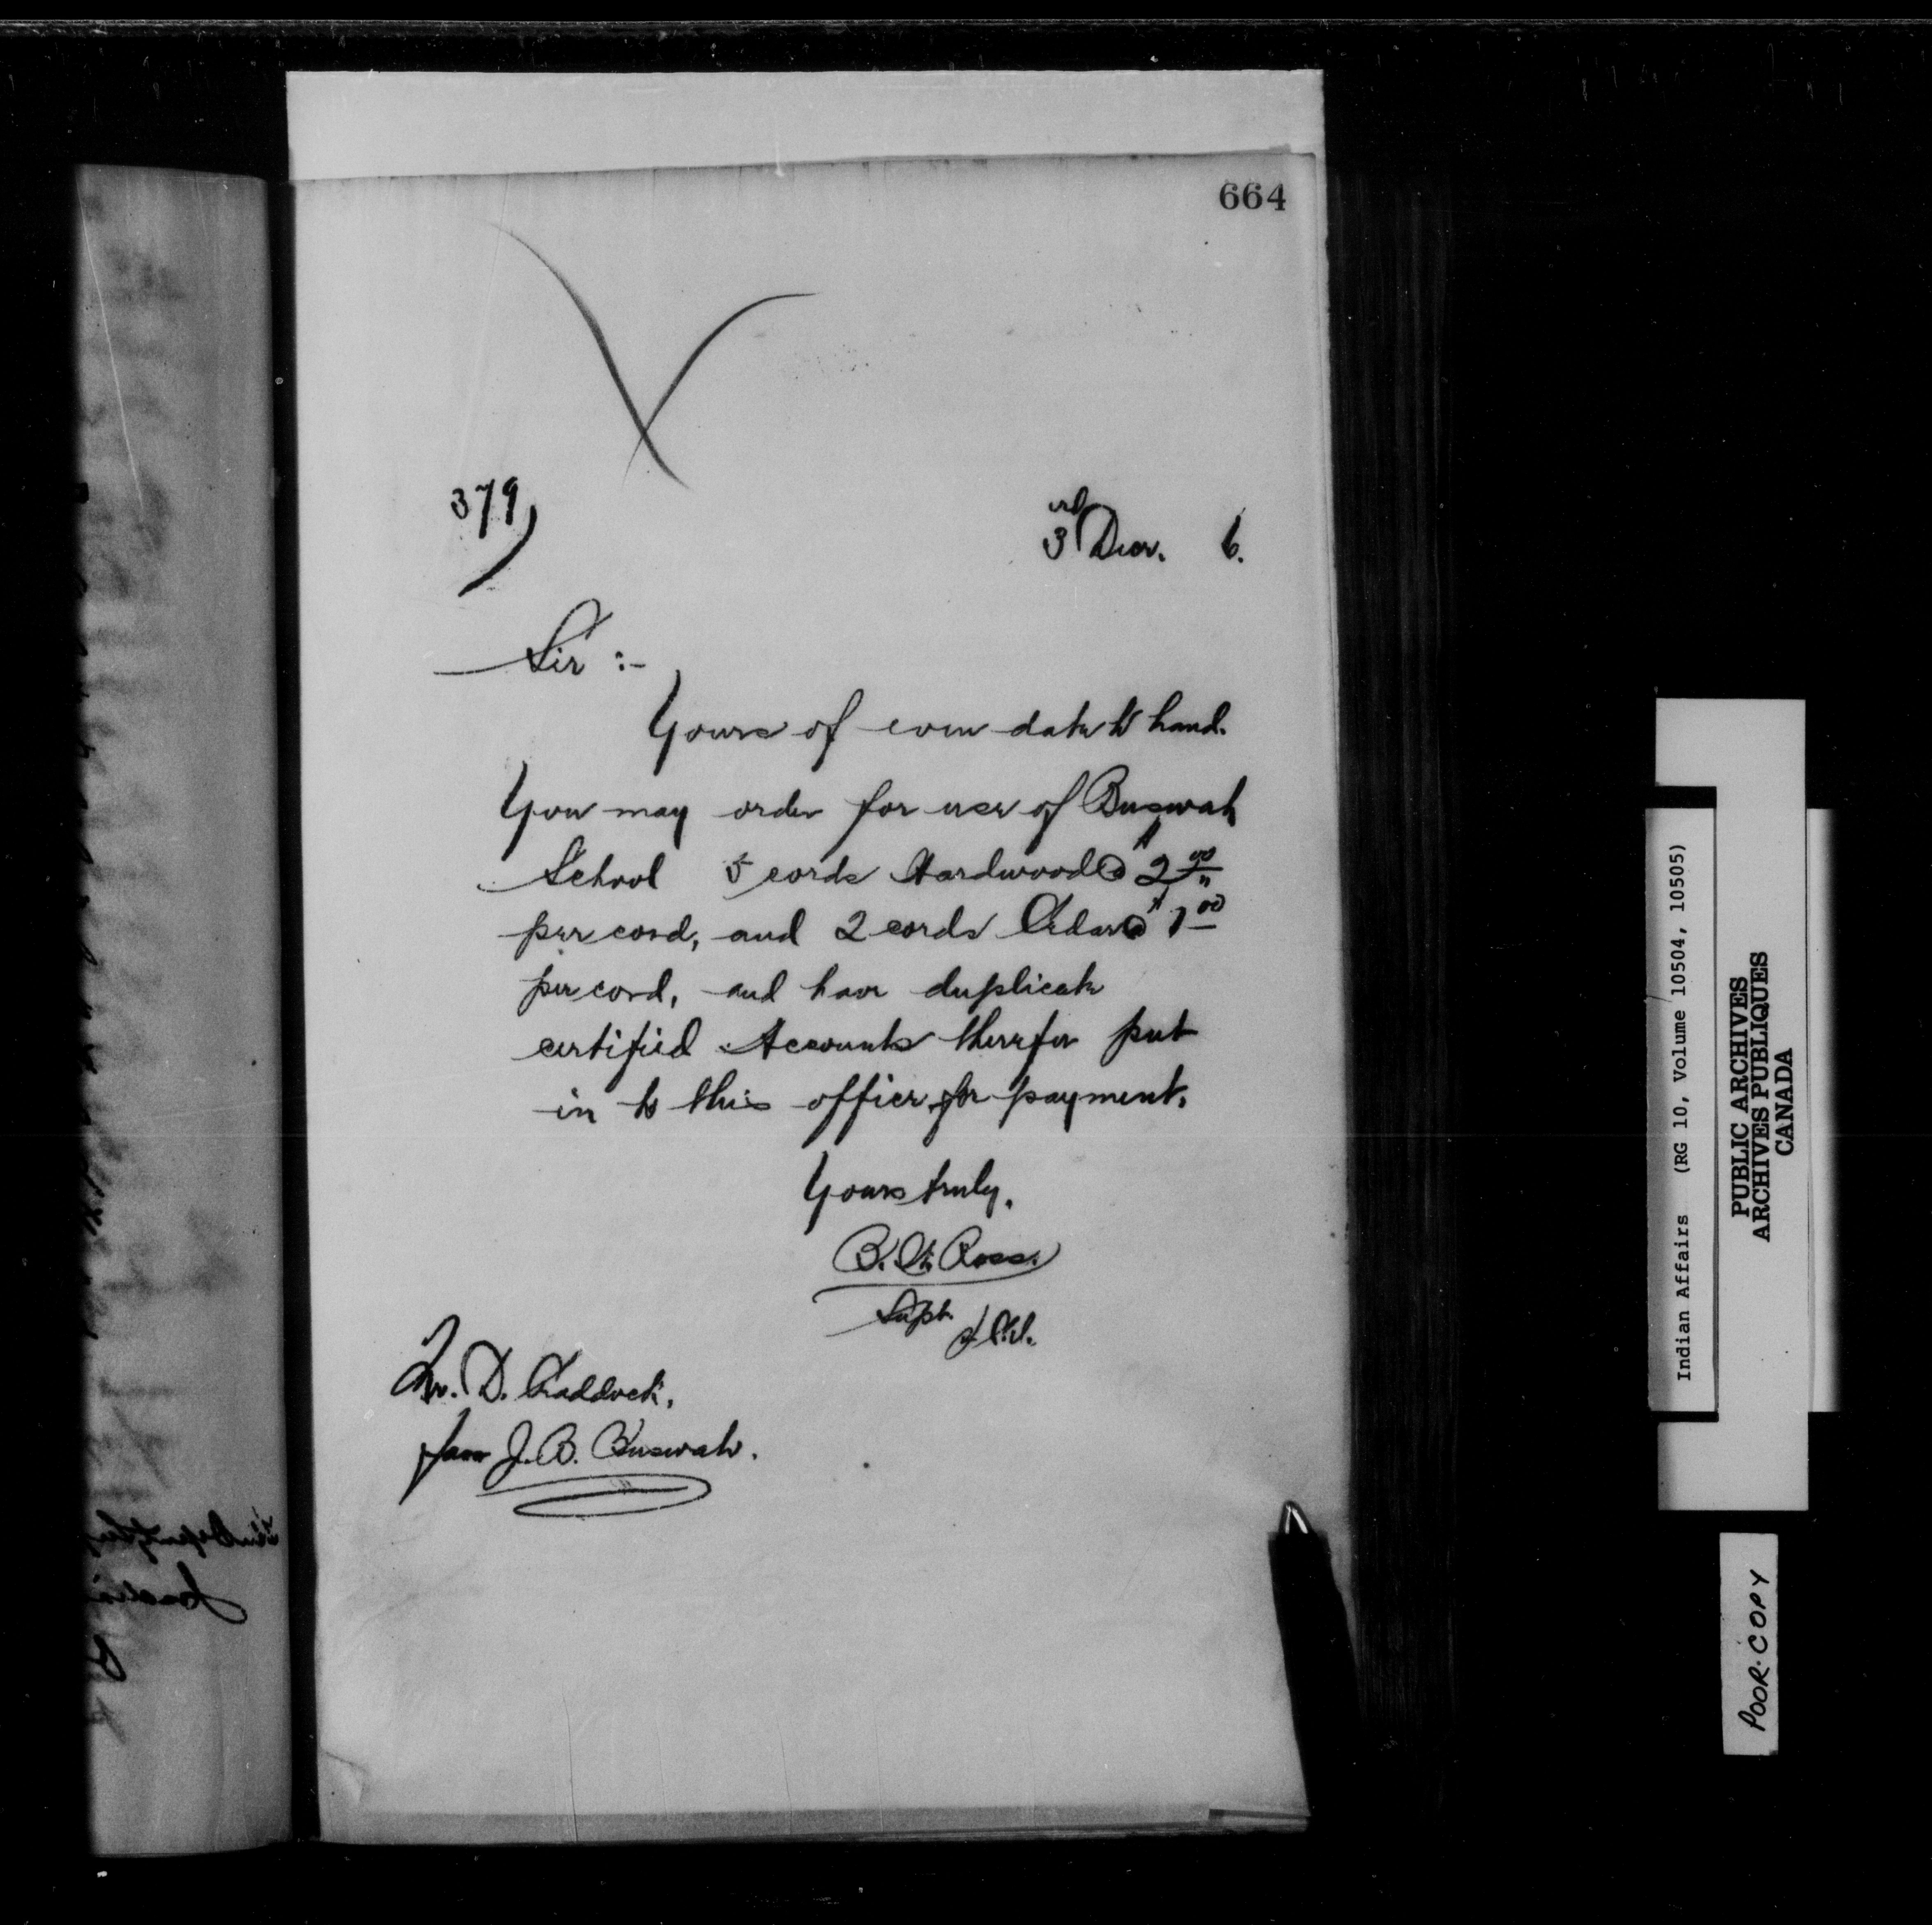 664
379
3rd Decr. 6.
Sir :-
Yours of even date to hand.
You may order for use of Buswah
School 5 cords Hardwood @ $2.00
per cord, and 2 cords Cedar @ $1.00
per cord, and have duplicate
certified Accounts therefor put
in to this office for payment.
Yours truly,
B. W. Ross.
Supt.
Mr. D. Craddock,
J. B. Buswah.
Indian Affairs (RG 10, Volume 10504, 10505)
PUBLIC ARCHIVES
ARCHIVES PUBLIQUES
CANADA
POOR COPY